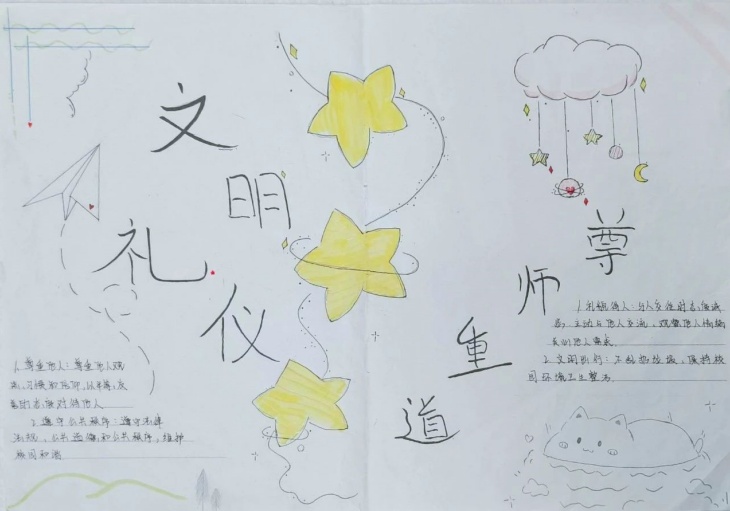 文明
礼仪
尊师
重道
1.尊重他人：尊重他人观
点、习惯和信仰，以平等、友
善的态度对待他人
2.遵守公共秩序：遵守法律
法规、公共道德和公共秩序，维护
校园和谐
1.礼貌待人：与人交往时
主动与他人交流，观察他人情绪
2.文明出行：不乱扔垃圾，保持校
园环境卫生整洁